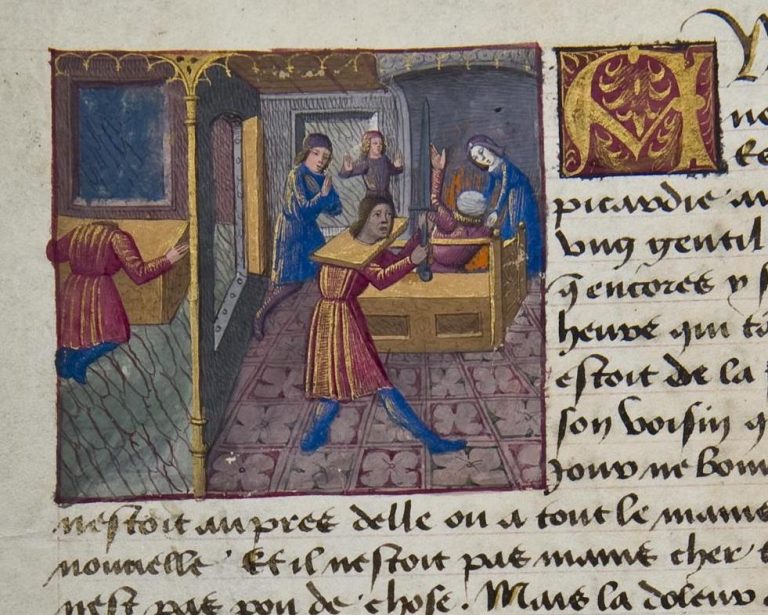 A
picardie
vng gentil
q̃ encores y
heure qui
estoit de la
son voisin
Jour ne
nestoit aupres delle ou a tout le mains
nouuelle Et il nestoit pas mains cher
nest pas pou de chose. Mais la doleur